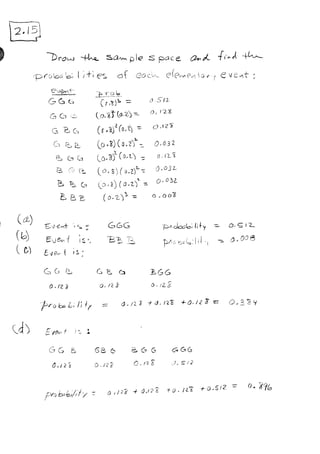 2.15
Draw the sample space and find the
probabilities of each elementary event :
Event prob
GGG (0.8)³ = 0.512
GG (0.8)²(0.2) = 0.128
G B G (0.8)²(0.2) = 0.128
G B B (0.8)(0.2)² = 0.032
B G G (0.8)²(0.2) = 0.128
B G B (0.8)(0.2)² = 0.032
B B G (0.8)(0.2)² = 0.032
B B B (0.2)³ = 0.008
(a) Event is : GGG probability = 0.512
(b) Event is : BBB probability = 0.008
(c) Event is :
G G B G B G BGG
0.128 0.128 0.128
probability = 0.128 + 0.128 + 0.128 = 0.384
(d) Event is :
GG B GB G B G G GGG
0.128 0.128 0.128 0.512
probability = 0.128 + 0.128 + 0.128 + 0.512 = 0.896